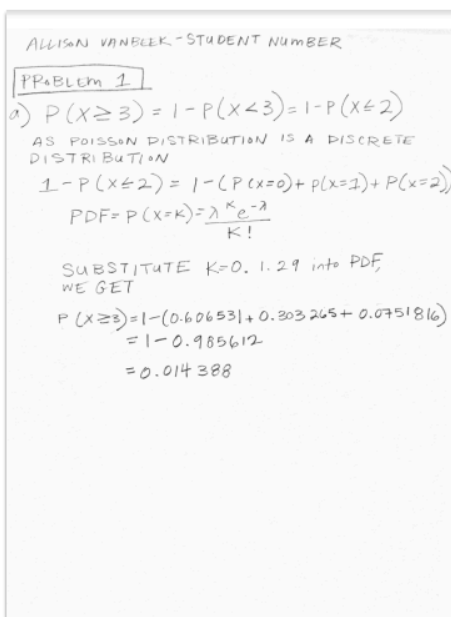 ALLISON VANBLEK - STUDENT NUMBER
PROBLEM 1
a) P(X≥3) = 1-P(X<3) = 1-P(X≤2)
AS POISSON DISTRIBUTION IS A DISCRETE
DISTRIBUTION
1-P(X≤2) = 1-(P(X=0)+P(X=1)+P(X=2))
PDF = P(X=K) = λ^K e^-λ / K!
SUBSTITUTE K=0. 1. 29 into PDF,
WE GET
P(X≥3) = 1-(0.606531+0.303265+0.0751816)
= 1-0.985612
= 0.014388